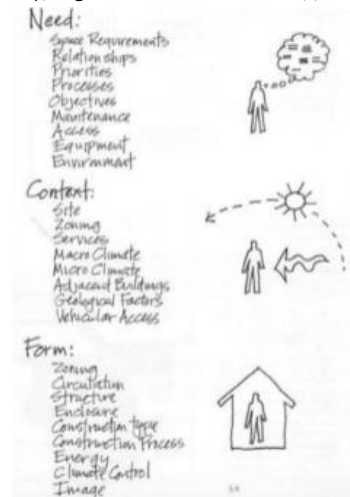 Need:
Space Requirements
Relationships
Priorities
Processes
Objectives
Maintenance
Access
Equipment
Environment
Context:
Site
Zoning
Services
Macro Climate
Micro Climate
Adjacent Buildings
Geological Factors
Vehicular Access
Form:
Zoning
Circulation
Structure
Enclosure
Construction type
Construction Process
Energy
Climate Control
Image